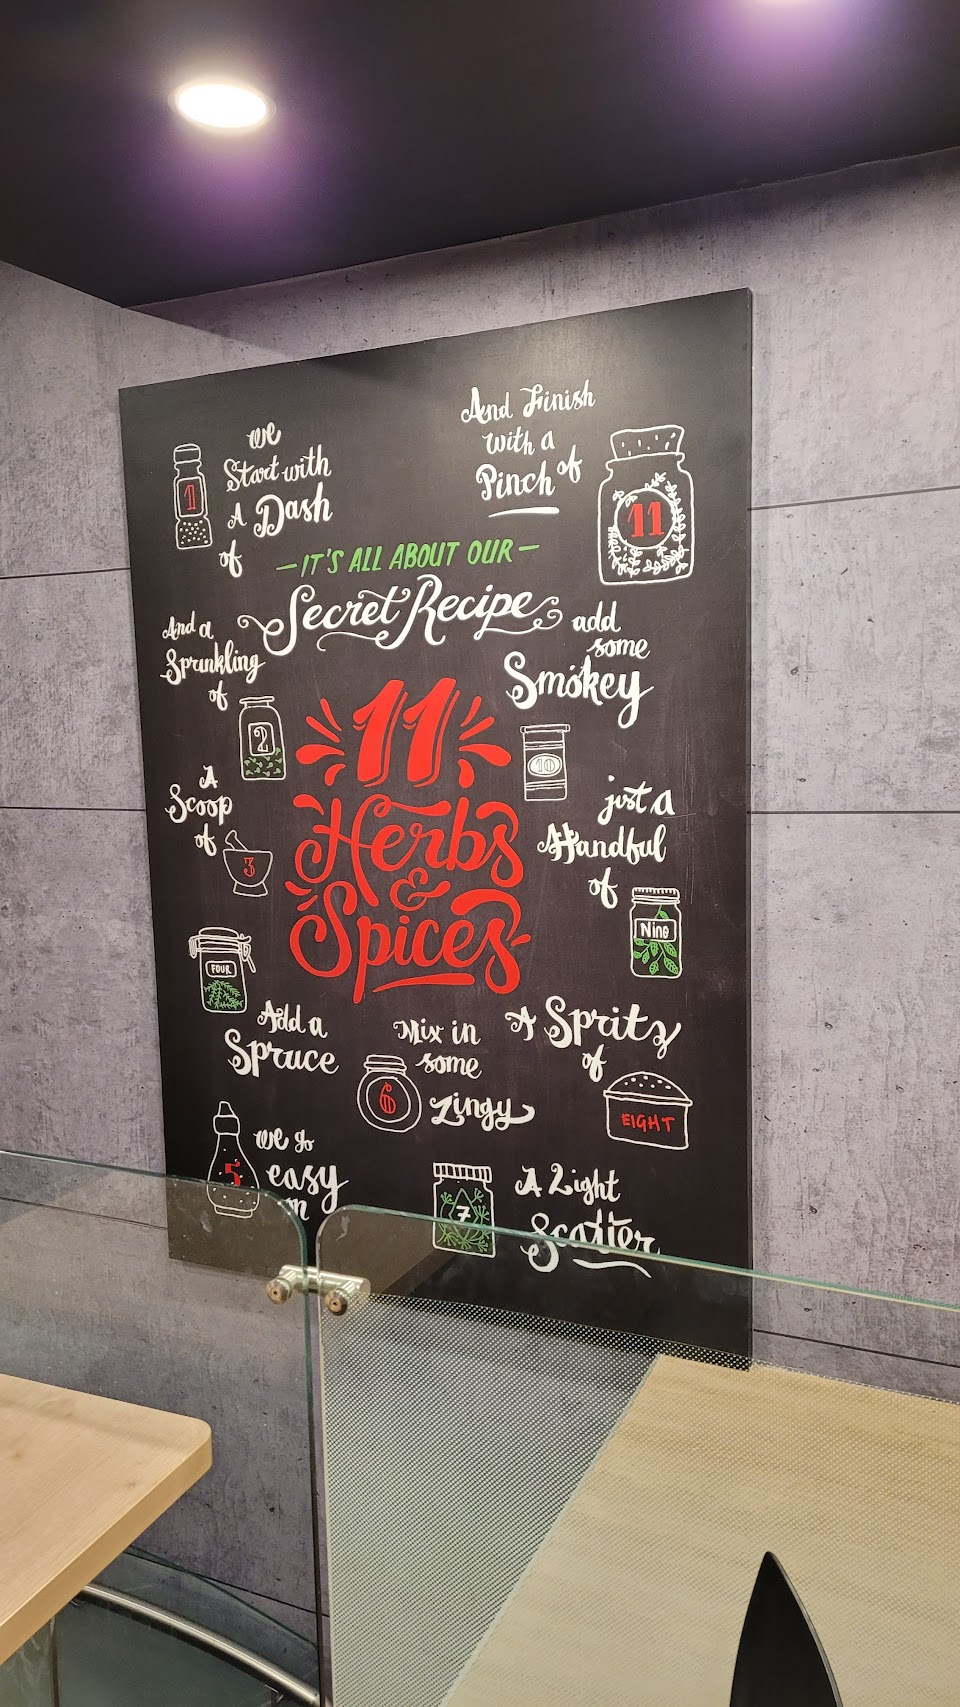 we
Start with
A Dash
of
1
IT'S ALL ABOUT OUR
Secret Recipe
11
Herbs
&
Spices
And a
Sprinkling
of
2
A
Scoop
of
3
FOUR
Add a
Spruce
we go
easy
on
5
Mix in
some
Zingy
6
A Light
Scatter
7
A Spritz
of
EIGHT
just a
Handful
of
Nine
add
some
Smokey
10
And Finish
with a
Pinch of
11